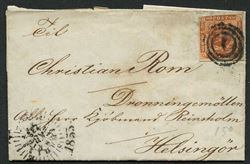 Til
Christian Rom
Dronningemöllen
Kjöbmand Reinholm
Helsingör
150